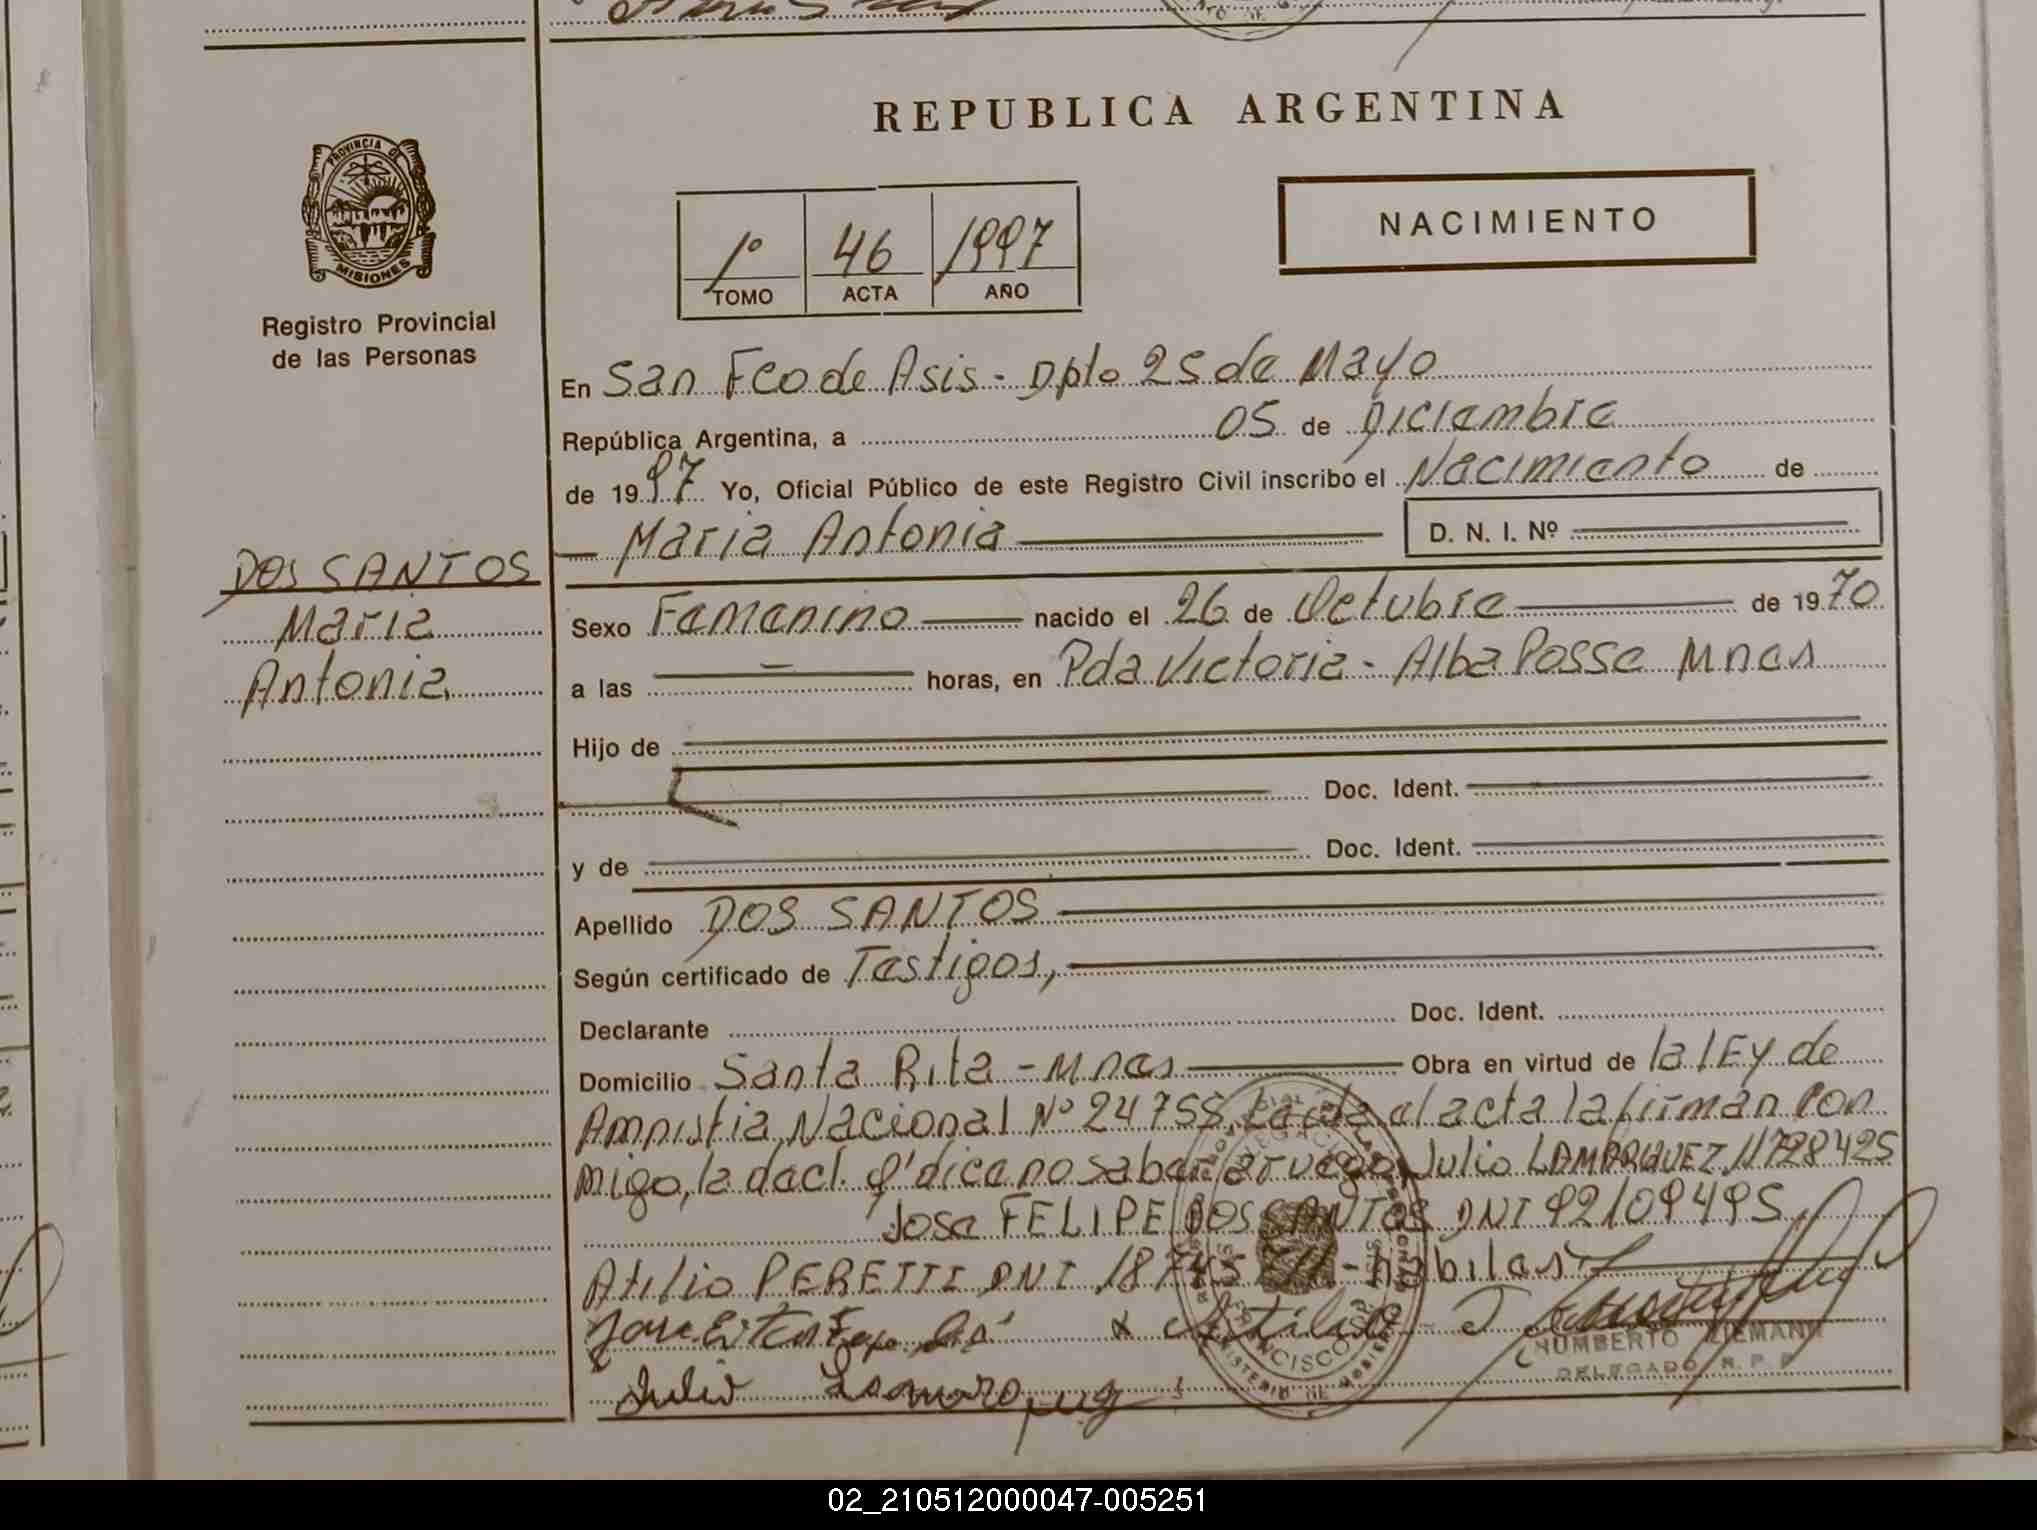 REPUBLICA ARGENTINA
PROVINCIA DE
MISIONES
Registro Provincial
de las Personas
1º 46 1997
TOMO ACTA AÑO
NACIMIENTO
En San Fco de Asis - Dpto 25 de Mayo
República Argentina, a 05 de Diciembre
de 1997 Yo, Oficial Público de este Registro Civil inscribo el Nacimiento de
Maria Antonia D. N. I. Nº
DOS SANTOS
Maria
Antonia
Sexo Femenino nacido el 26 de Octubre de 1970
a las horas, en Pda Victoria - Alba Posse Mnes
Hijo de
Doc. Ident.
y de Doc. Ident.
Apellido DOS SANTOS
Según certificado de Testigos,
Declarante Doc. Ident.
Domicilio Santa Rita - Mnes Obra en virtud de la lEy de
Amnistia Nacional Nº 24755, el acta la firman con
migo, la decl. q' dice no saber a ruego Julio LAMARQUEZ 11728425
Jose FELIPE DOS SANTOS DNI 92109495
Atilio PERETTI DNI - habiles
Atilio
HUMBERTO
DELEGADO R. P. P.
Julio
02_210512000047-005251